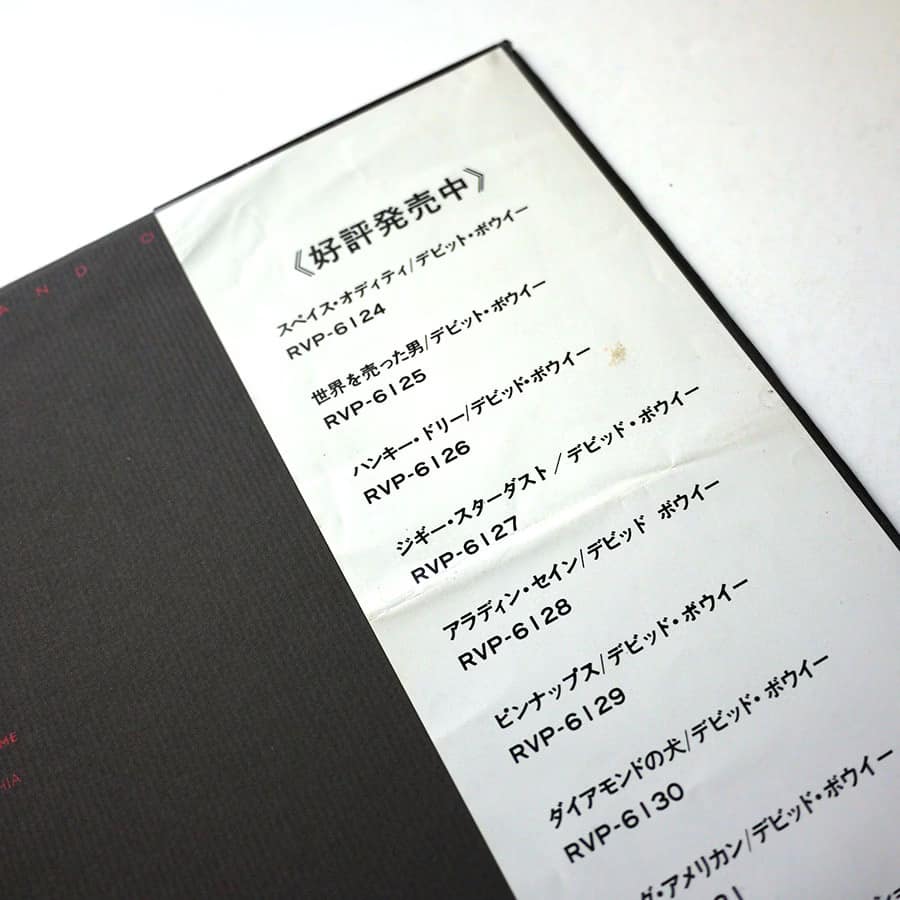 AND O
ME
HIA
《好評発売中》
スペイス・オディティ/デビット・ボウイー
RVP-6124
世界を売った男/デビット・ボウイー
RVP-6125
ハンキー・ドリー/デビッド・ボウイー
RVP-6126
ジギー・スターダスト / デビッド・ボウイー
RVP-6127
アラディン・セイン/デビッド ボウイー
RVP-6128
ピンナップス/デビッド・ボウイー
RVP-6129
ダイアモンドの犬/デビッド・ボウイー
RVP-6130
グ・アメリカン/デビッド・ボウイー